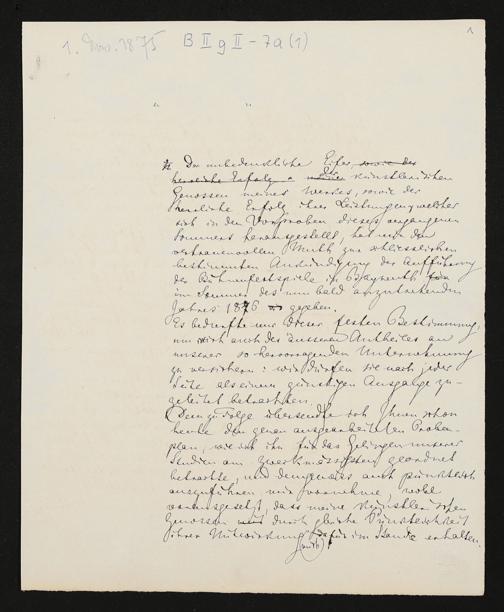 1. Nov. 1875 B II g II - 7a (1)
1
Der unbedenkliche Eifer, sowie der
herrliche Erfolg der künstlerischen
Genossen meines Werkes, sowie der
herrliche Erfolg ihrer Leistungen, welcher
sich in den Vorproben dieses vergangenen
Sommers herausgestellt, hat mir den
vertrauenvollen Muth zur schliesslichen
bestimmten Ankündigung der Aufführung
der Bühnenfestspiele in Bayreuth
im Sommer des nun bald anzutretenden
Jahres 1876 gegeben.
Es bedurfte nur dieser festen Bestimmung,
um mich auch des äusseren Antheiles an
unserer so hervorragenden Unternehmung
zu versichern: wir dürfen sie nach jeder
Seite als einem günstigen Ausgange zu-
geleitet betrachten.
Demzufolge übersende ich Ihnen schon
heute den genau ausgearbeiteten Proben-
plan, wie ich ihn für das Gelingen unserer
Studien am zweckmässigsten geordnet
betrachte, und demgemäss auch pünktlich
auszuführen mir vornehme, wohl
vorausgesetzt, dass meine künstlerischen
Genossen durch gleiche Pünktlichkeit
ihrer Mitwirkung mich dafür im Stande erhalten.